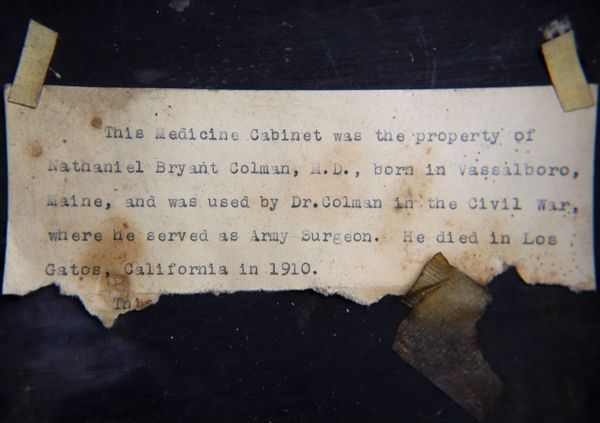 This Medicine Cabinet was the property of
Nathaniel Bryant Colman, M.D., born in Vassalboro,
Maine, and was used by Dr.Colman in the Civil War,
where he served as Army Surgeon. He died in Los
Gatos, California in 1910.
This